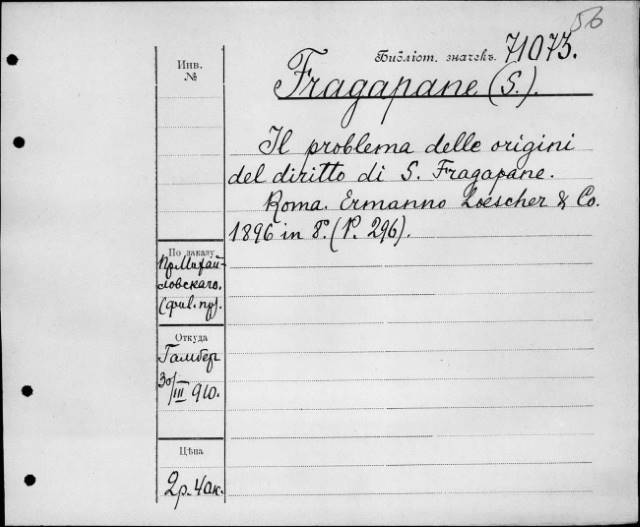 56
Библіот. значекъ. 71073.
Инв.
№
Fragapane (S.).
Il problema delle origini
del diritto di S. Fragapane.
Roma. Ermanno Loescher & Co.
1896 in 8°. (P. 296).
По заказу
Пр. Михай-
ловскаго.
(фил. пр).
Откуда
Гамбер
30/III 910.
Цѣна
2р. 40к.